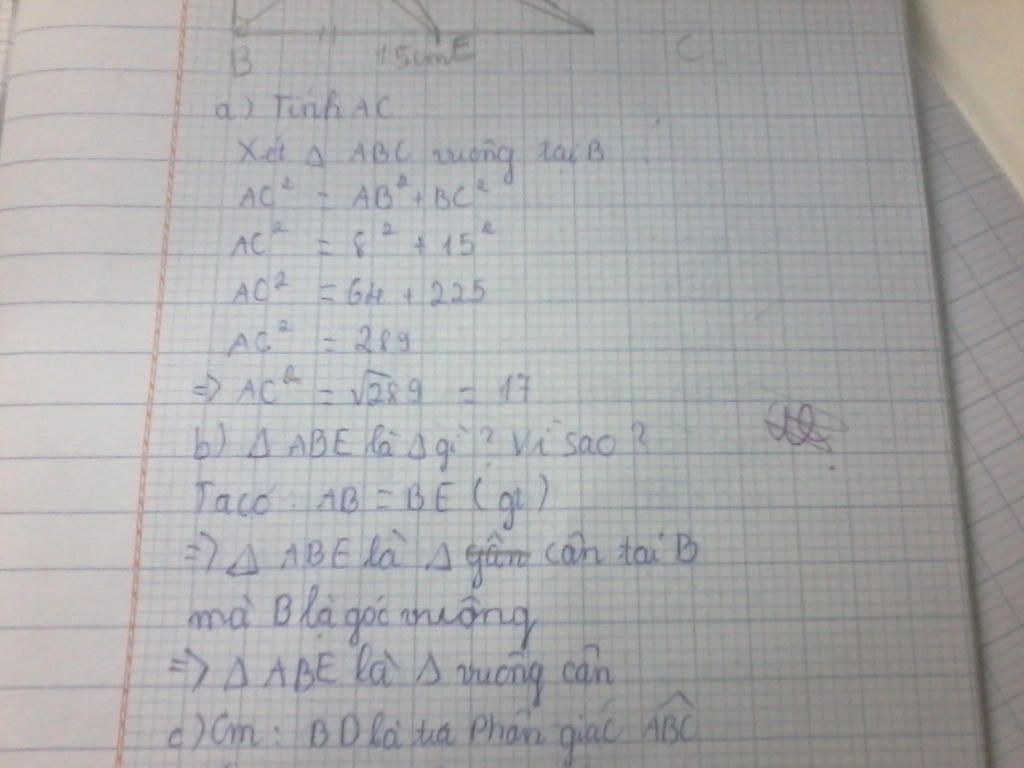 B 15cm E C
a) Tính AC
Xét Δ ABC vuông tại B
AC² = AB² + BC²
AC² = 8² + 15²
AC² = 64 + 225
AC² = 289
=> AC² = √289 = 17
b) Δ ABE là Δ gì? Vì sao?
Ta có: AB = BE (gt)
=> Δ ABE là Δ gân cân tại B
mà B là góc vuông
=> Δ ABE là Δ vuông cân
c) Cm: BD là tia phân giác ABC